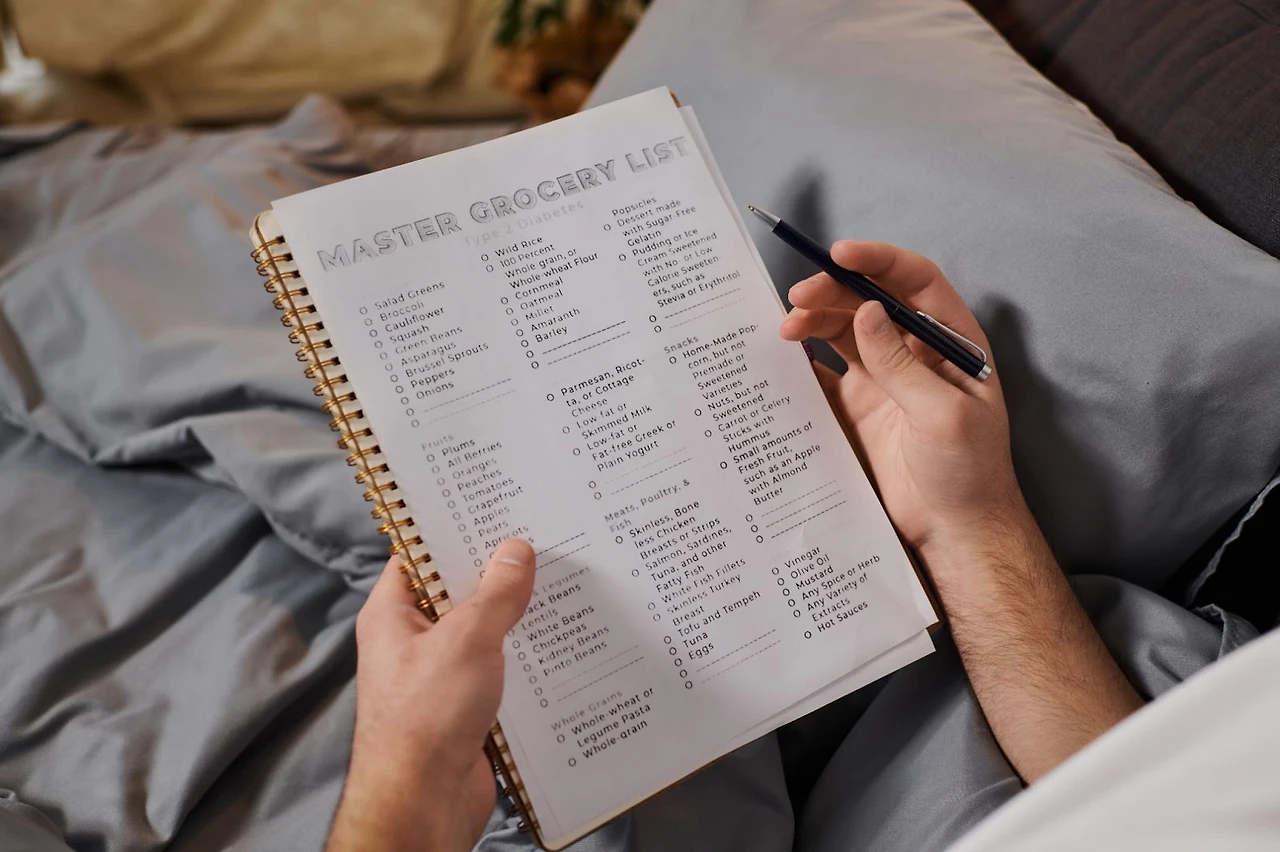 MASTER GROCERY LIST
Type 2 Diabetes
Salad Greens
Broccoli
Cauliflower
Squash
Green Beans
Asparagus
Brussel Sprouts
Peppers
Onions
Fruits
Plums
All Berries
Oranges
Peaches
Tomatoes
Grapefruit
Apples
Pears
Apricots
Legumes
Black Beans
Lentils
White Beans
Chickpeas
Kidney Beans
Pinto Beans
Whole Grains
Whole-wheat or
Legume Pasta
Whole-grain
Wild Rice
100 Percent
Whole grain, or
Whole-wheat Flour
Cornmeal
Oatmeal
Millet
Amaranth
Barley
Parmesan, Ricot-
ta, or Cottage
Cheese
Low fat or
Skimmed Milk
Low-fat or
Fat-free Greek or
Plain Yogurt
Meats, Poultry, &
Fish
Skinless, Bone
less Chicken
Breasts or Strips
Salmon, Sardines,
Tuna, and other
Fatty Fish
White Fish Fillets
Skinless Turkey
Breast
Tofu and Tempeh
Tuna
Eggs
Popsicles
Dessert made
with Sugar-Free
Gelatin
Pudding or Ice
Cream Sweetened
with No or Low
Calorie Sweeten-
ers, such as
Stevia or Erythritol
Snacks
Home-Made Pop-
corn, but not
Premade or
Sweetened
Varieties
Nuts, but not
Sweetened
Carrot or Celery
Sticks with
Hummus
Small amounts of
Fresh Fruit,
such as an Apple
with Almond
Butter
Vinegar
Olive Oil
Mustard
Any Spice or Herb
Any Variety of
Extracts
Hot Sauces